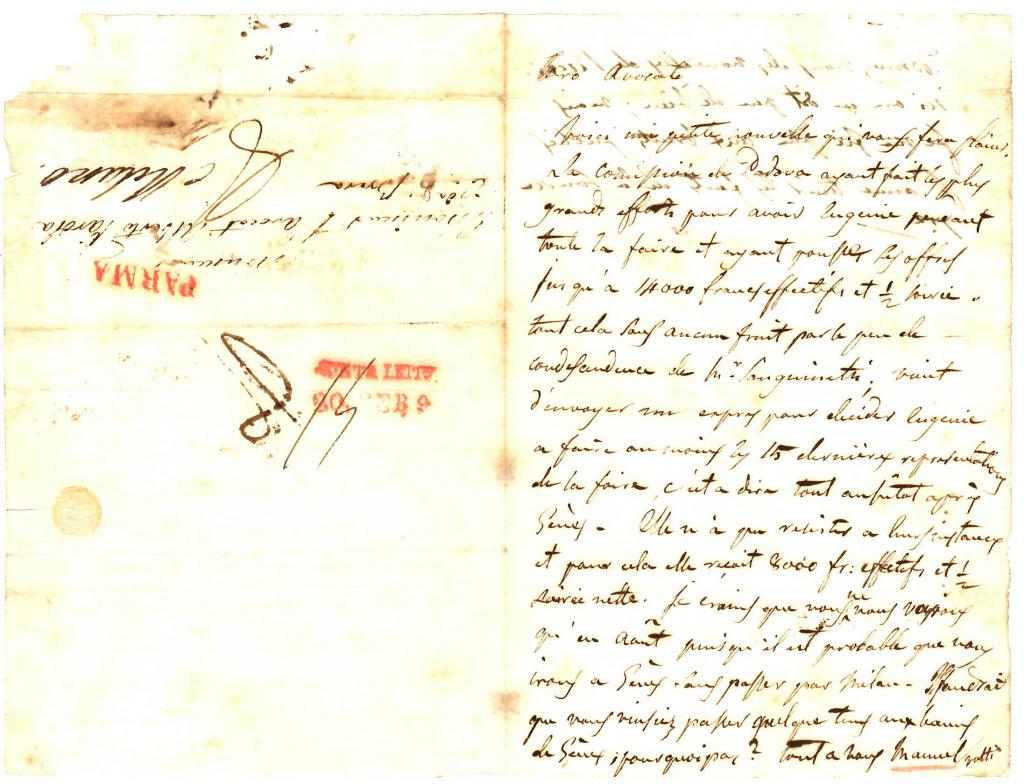 Caro Avocato
Voici une petite nouvelle qui vous fera plaisir.
La comission de Padova ayant fait les plus
grands efforts pour avoir Eugenie pendant
toute la faire et ayant pousser les offres
jusqu'à 14000 francs effectifs et ½ soirée.
tout cela sans aucun fruit par le peu de
condesandence de Mr. Sanguineti, vient
d'envoyer un expres pour décider Eugenie
a faire au moins les 15 dernières representations
de la foire, c'est a dire tout ausitot après
Gênes - Elle n'à que resister a leurs instances
et pour cela elle reçoit 8000 fr: effectifs et ½
soirée nette. Je crains que nous ne nous voyions
qu'en Août puisqu'il est probable que nous
irons a Gênes sans passer par Milan - Il faudrait
que vous veniez passer quelque tems aux bains
de Gênes; pourquoi pas? tout a vous Manuel
Monsieur
Monsieur l'avocat Alberto Parola
Milano.
PARMA
20 FEB